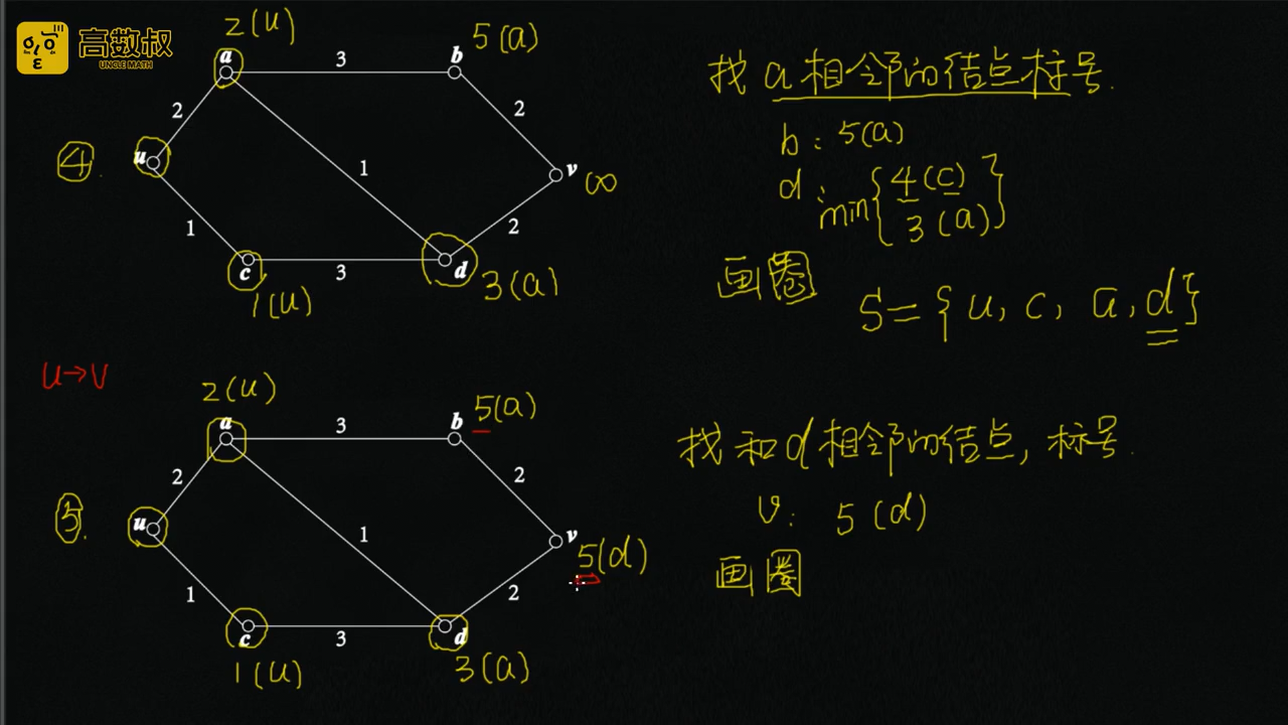 高数叔
UNCLE MATH
2(u)
a
3
b
5(a)
2
2
④.
u
1
v
∞
1
2
c
3
d
1(u)
3(a)
找a相邻的结点标号.
b: 5(a)
d: min{4(c)
3(a)}
画圈
S={u, c, a, d}
u→v
2(u)
a
3
b
5(a)
2
2
⑤.
u
1
v
5(d)
1
2
c
3
d
1(u)
3(a)
找和d相邻的结点, 标号.
v: 5(d)
画圈